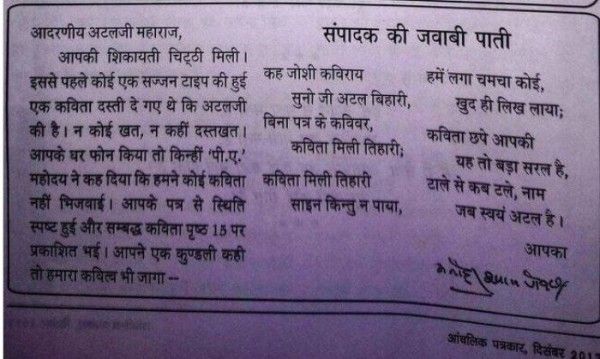 आदरणीय अटलजी महाराज,
आपकी शिकायती चिट्ठी मिली।
इससे पहले कोई एक सज्जन टाइप की हुई
एक कविता दस्ती दे गए थे कि अटलजी
की है। न कोई खत, न कहीं दस्तखत।
आपके घर फोन किया तो किन्हीं 'पी.ए.'
महोदय ने कह दिया कि हमने कोई कविता
नहीं भिजवाई। आपके पत्र से स्थिति
स्पष्ट हुई और सम्बद्ध कविता पृष्ठ 15 पर
प्रकाशित भई। आपने एक कुण्डली कही
तो हमारा कवित्व भी जागा –
संपादक की जवाबी पाती
कह जोशी कविराय
सुनो जी अटल बिहारी,
बिना पत्र के कविवर,
कविता मिली तिहारी;
कविता मिली तिहारी
साइन किन्तु न पाया,
हमें लगा चमचा कोई,
खुद ही लिख लाया;
कविता छपे आपकी
यह तो बड़ा सरल है,
टाले से कब टले, नाम
जब स्वयं अटल है।
आपका
मनोहर श्याम जोशी
आंचलिक पत्रकार, दिसंबर